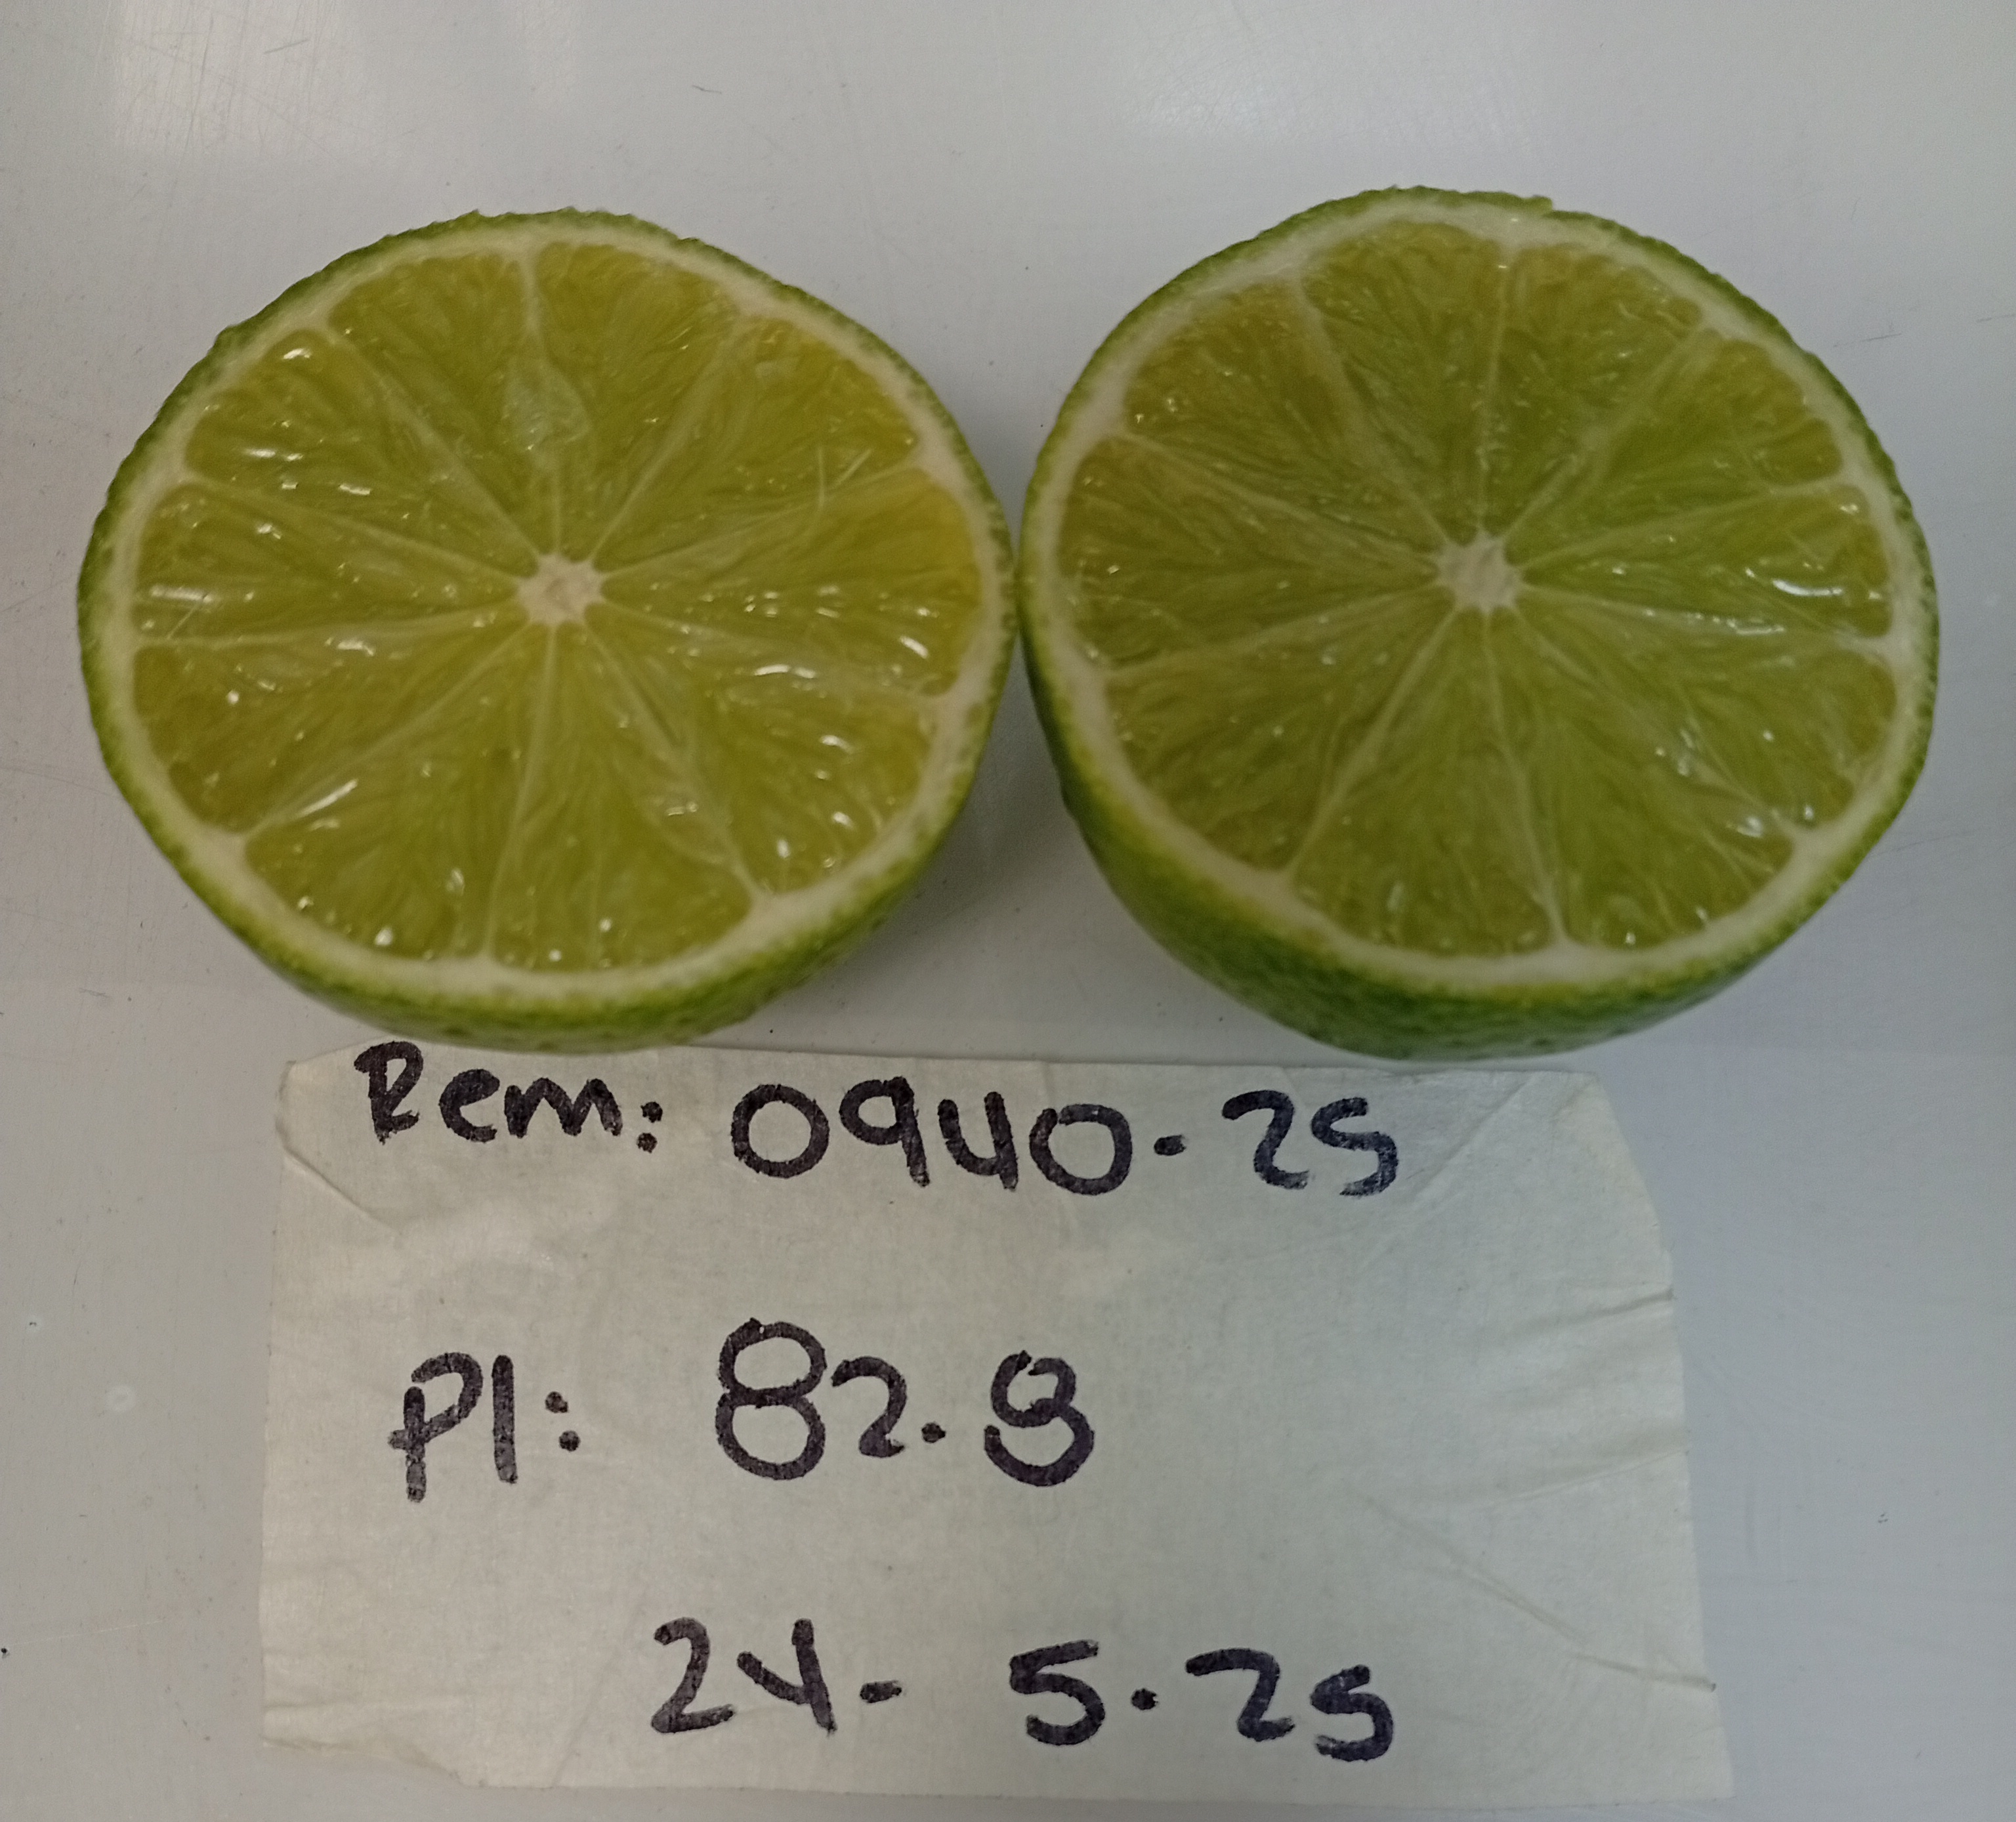 Rem: 0940-25
Pl: 82.8
24- 5.25